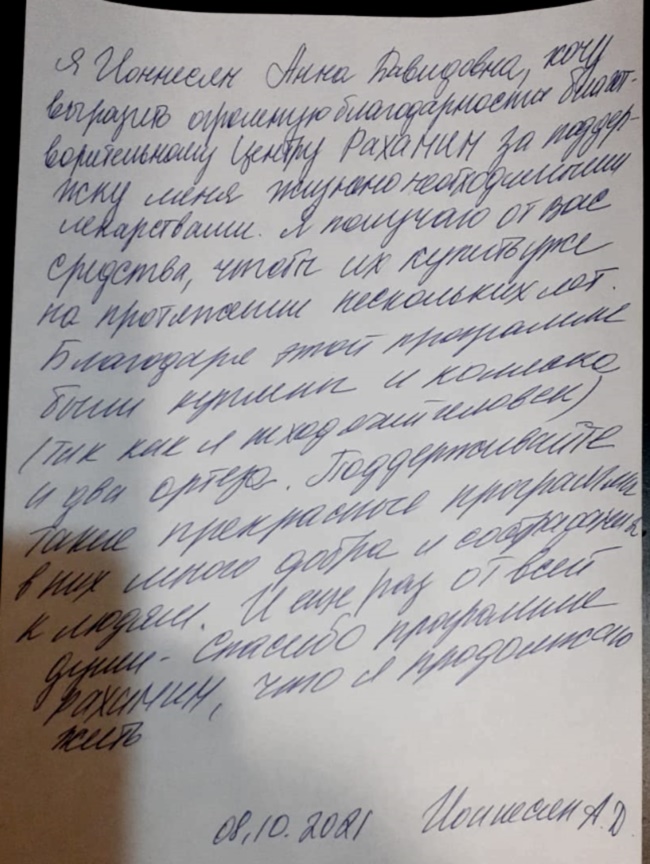 Я Ионнесян Анна Давидовна, хочу
выразить огромную благодарность благот-
ворительному Центру Рахамим за поддер-
жку меня жизненно необходимыми
лекарствами. Я получаю от вас
средства, чтобы их купить уже
на протяжении нескольких лет.
Благодаря этой программе
были куплены и коляска
(так как я человек)
и два ортеза. Поддерживайте
такие прекрасные программы
в них много добра и сострадания
к людям. И еще раз от всей
души - спасибо программе
Рахамим, что я продолжаю
жить
08.10.2021 Ионнесян А.Д